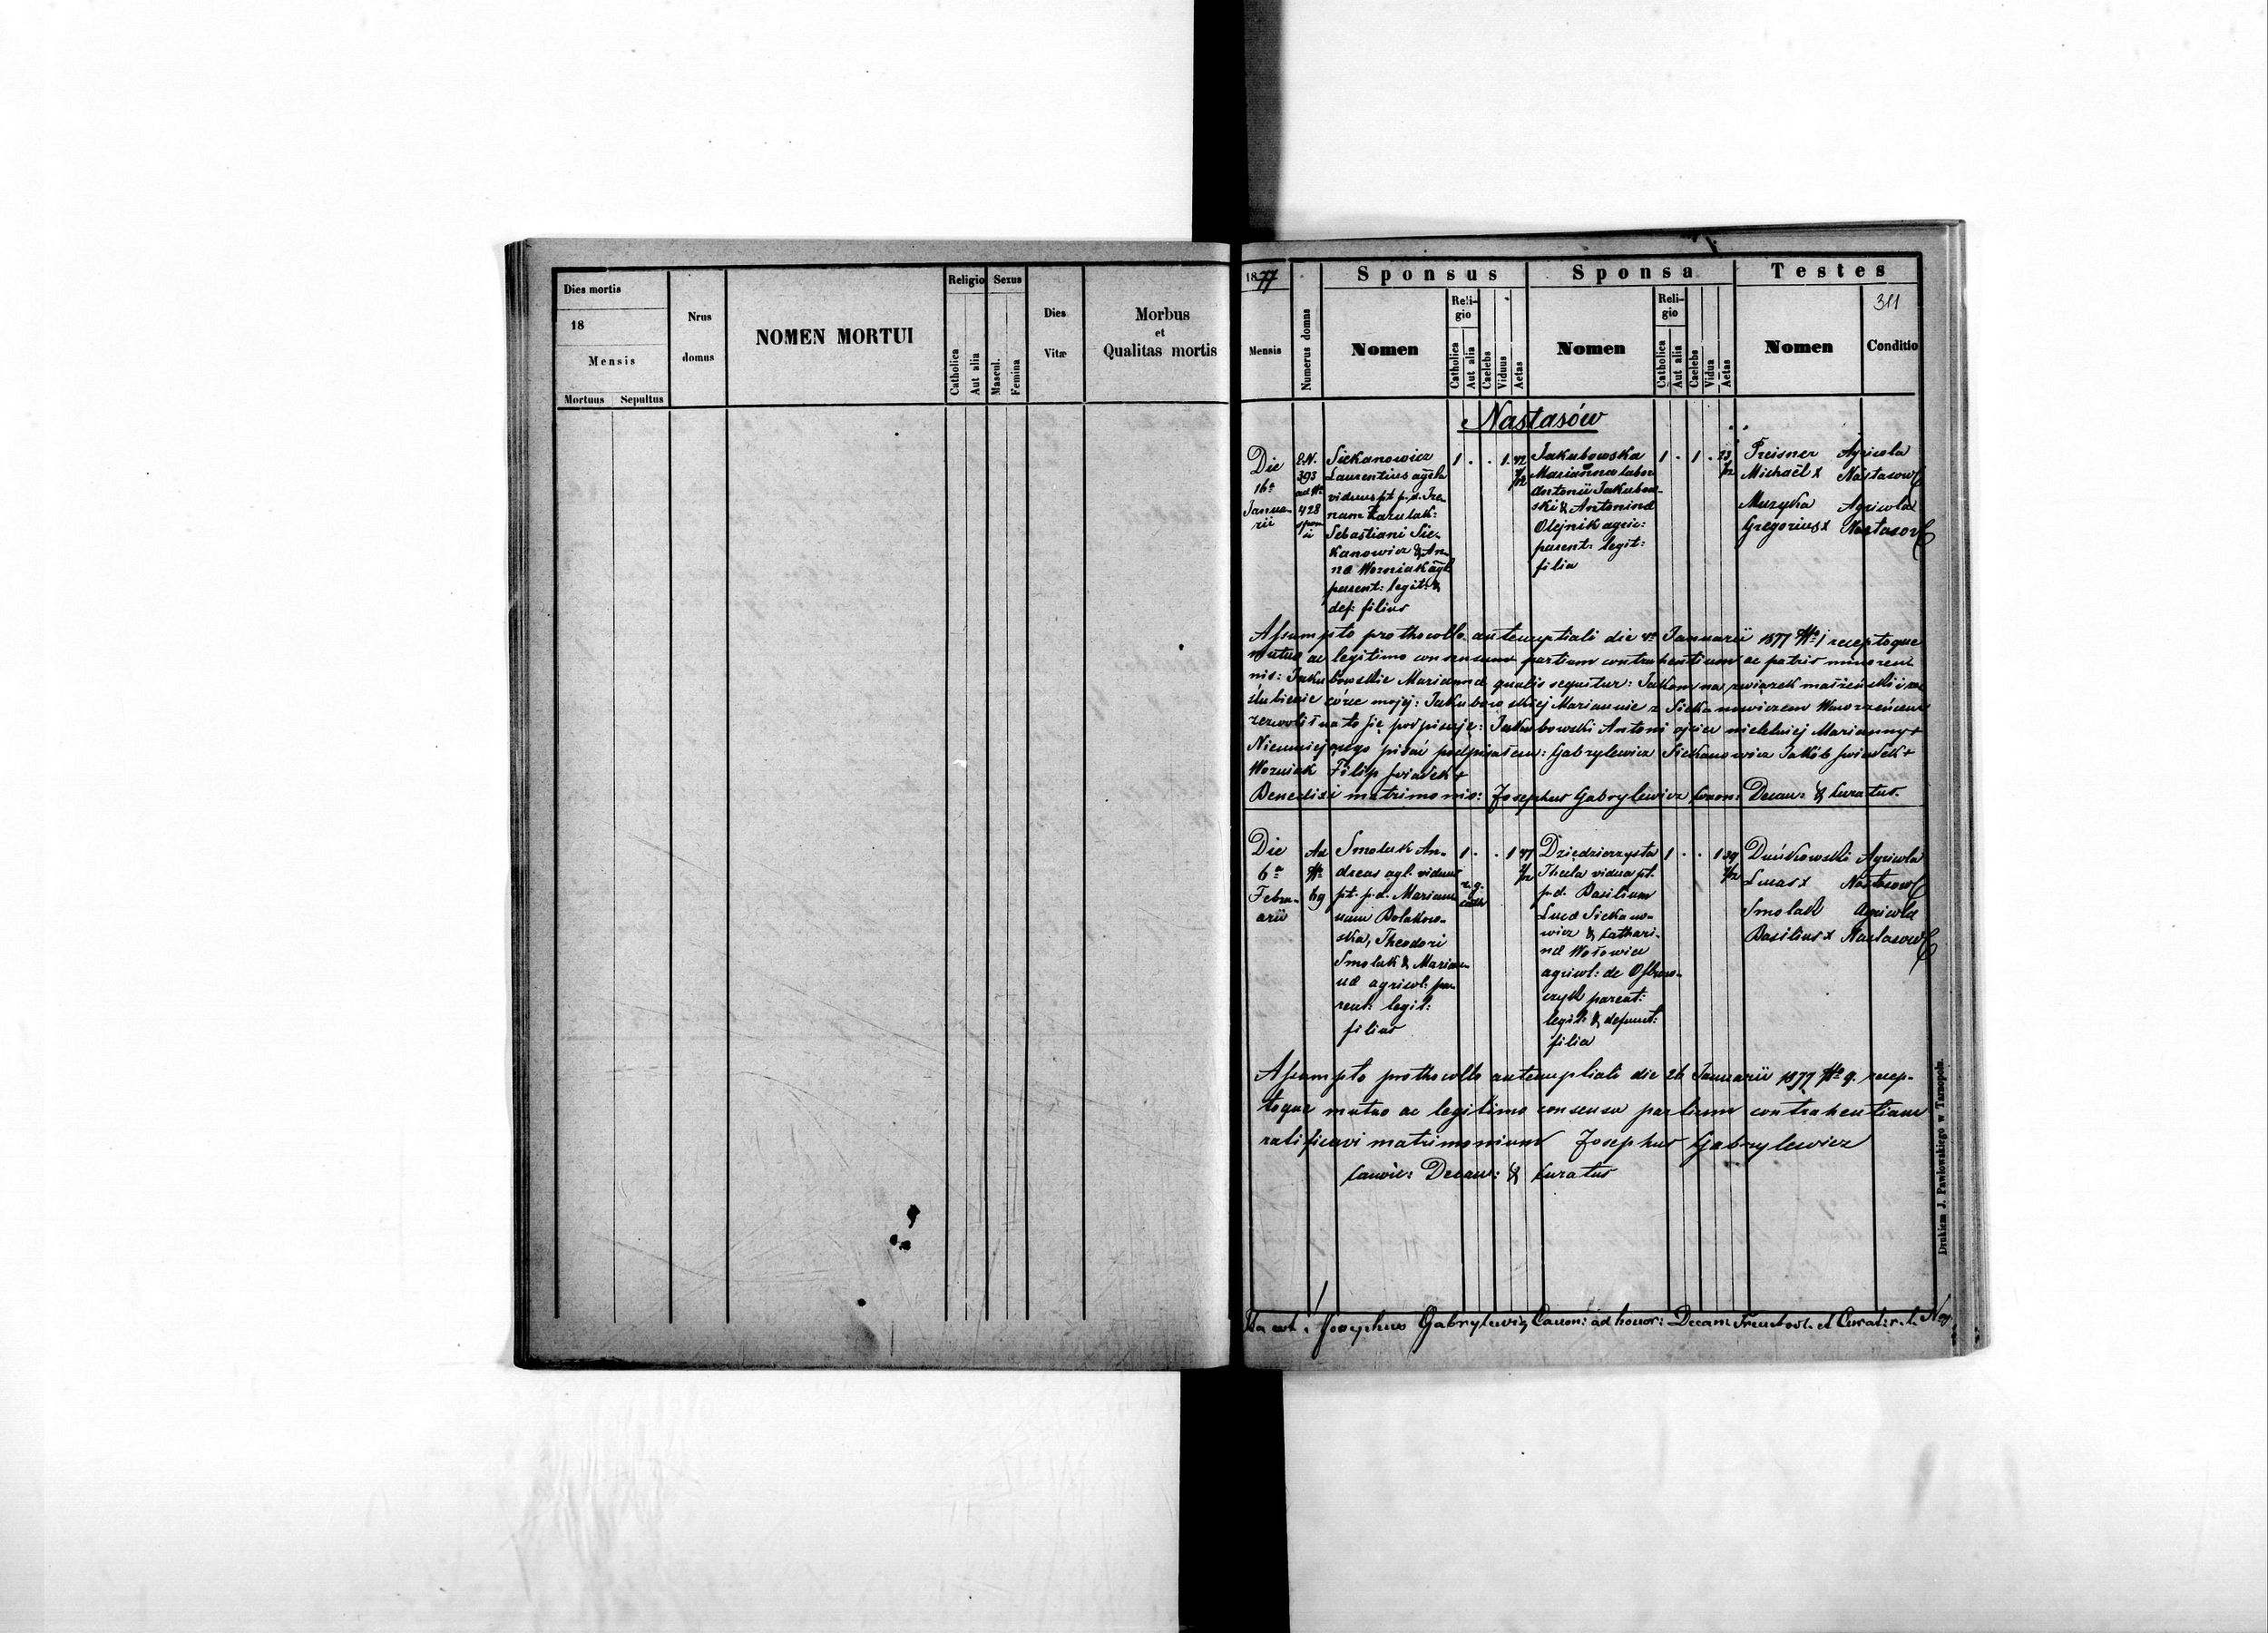 Dies mortis
18
Mensis
Mortuus Sepultus
Nrus
domus
NOMEN MORTUI
Religio Sexus
Catholica
Aut alia
Mascul.
Femina
Dies
Vitæ
Morbus
et
Qualitas mortis
1877
Mensis
Numerus domus
Sponsus
Nomen
Reli-
gio
Catholica
Aut alia
Caelebs
Viduus
Aetas
Sponsa
Nomen
Reli-
gio
Catholica
Aut alia
Caelebs
Vidua
Aetas
Testes
311
Nomen
Conditio
Nastasów
Die
16a
Janua-
rii
393
ad No
428
Siekanowicz
Laurentius
viduus pt. p. d. Ire-
nam
Sebastiani Sie-
kanowicz & An-
na Wozniak
parent: legit: &
def: filius
1 . . 1. 42
Jakubowska
Marianna
Antonii Jakubow-
ski & Antonina
Olejnik agric:
parent: legit:
filia
1 . 1 .
Preisner Agricola
Michaël x Nastasow
Muzyka Agricola
Gregorius x Nastasow
Assumpto prothocollo antenuptiali die 4a Januarii 1877 No 1 receptoque
mutuo ac legitimo consensu partium contrahentium ac patris minoren
nis: Jakubowskie Marianna qualis sequitur: Jakom na związek małżeński i za
ślubienie córce mojej: Jakubowskiej Mariannie z Siekanowiczem Wawrzeńcem
zezwolił na to się podpisuję: Jakubowski Antoni ojciec nieletniej Marianny +
Nieumiejącego pisać podpisałem: Gabrylewicz Siekanowicz Jakób świadek +
Wozniak Filip świadek +
Benedixi matrimonio: Josephus Gabrylewicz Canon: Decan: & Curatus.
Die
6a
Febru-
arii
Ad
No
69
Smoluk An-
dreas agl. viduus
pt. p. d. Marian
nam
ska, Theodori
Smoluk & Marian-
na agricol: pa-
rent: legit:
filius
1 . . 1 47
r. g.
cath
Dziedzierzysta
Thecla vidua pt.
p. d. Basilium
Luca Siekano-
wicz & Cathari-
na Wołowicz
agricol: de
parent:
legit: & defunct:
filia
1 . . 1 39
Duńkowski Agricola
Lucas x Nastasow
Smolak Agricola
Basilius x Nastasow
Assumpto prothocollo antenuptiali die 26 Januarii 1877 No 9. recep-
toque mutuo ac legitimo consensu partium contrahentium
ratificavi matrimonium Josephus Gabrylewicz
Canoic: Decan: & Curatus
Ita est. Josephus Gabrylewicz Canon: ad honor: Decan: et Curat: r. l.
Drukiem J. Pawłowskiego w Tarnopolu.